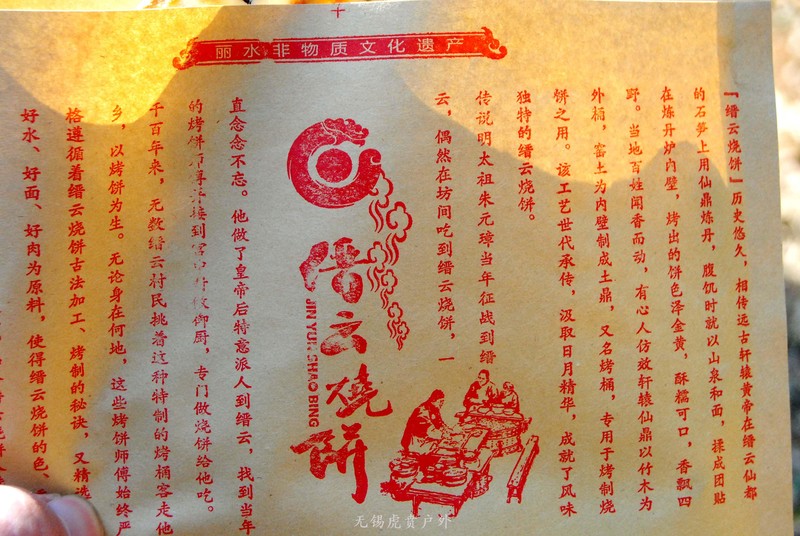 丽水非物质文化遗产
『缙云烧饼』历史悠久，相传远古轩辕黄帝在缙云仙都
的石笋上用仙鼎炼丹，腹饥时就以山泉和面，揉成团贴
在炼丹炉内壁，烤出的饼色泽金黄，酥糯可口，香飘四
野。当地百姓闻香而动，有心人仿效轩辕仙鼎以竹木为
外桶，窑土为内壁制成土鼎，又名烤桶，专用于烤制烧
饼之用。该工艺世代承传，汲取日月精华，成就了风味
独特的缙云烧饼。
传说明太祖朱元璋当年征战到缙
云，偶然在坊间吃到缙云烧饼，一
缙云燒餅
JIN YUN SHAO BING
直念念不忘。他做了皇帝后特意派人到缙云，找到当年
的烤饼师尊，接到宫中封做御厨，专门做烧饼给他吃。
千百年来，无数缙云村民挑着这种特制的烤桶客走他
乡，以烤饼为生。无论身在何地，这些烤饼师傅始终严
格遵循着缙云烧饼古法加工、烤制的秘诀，又精选
好水、好面、好肉为原料，使得缙云烧饼的色、
无锡虎贲户外